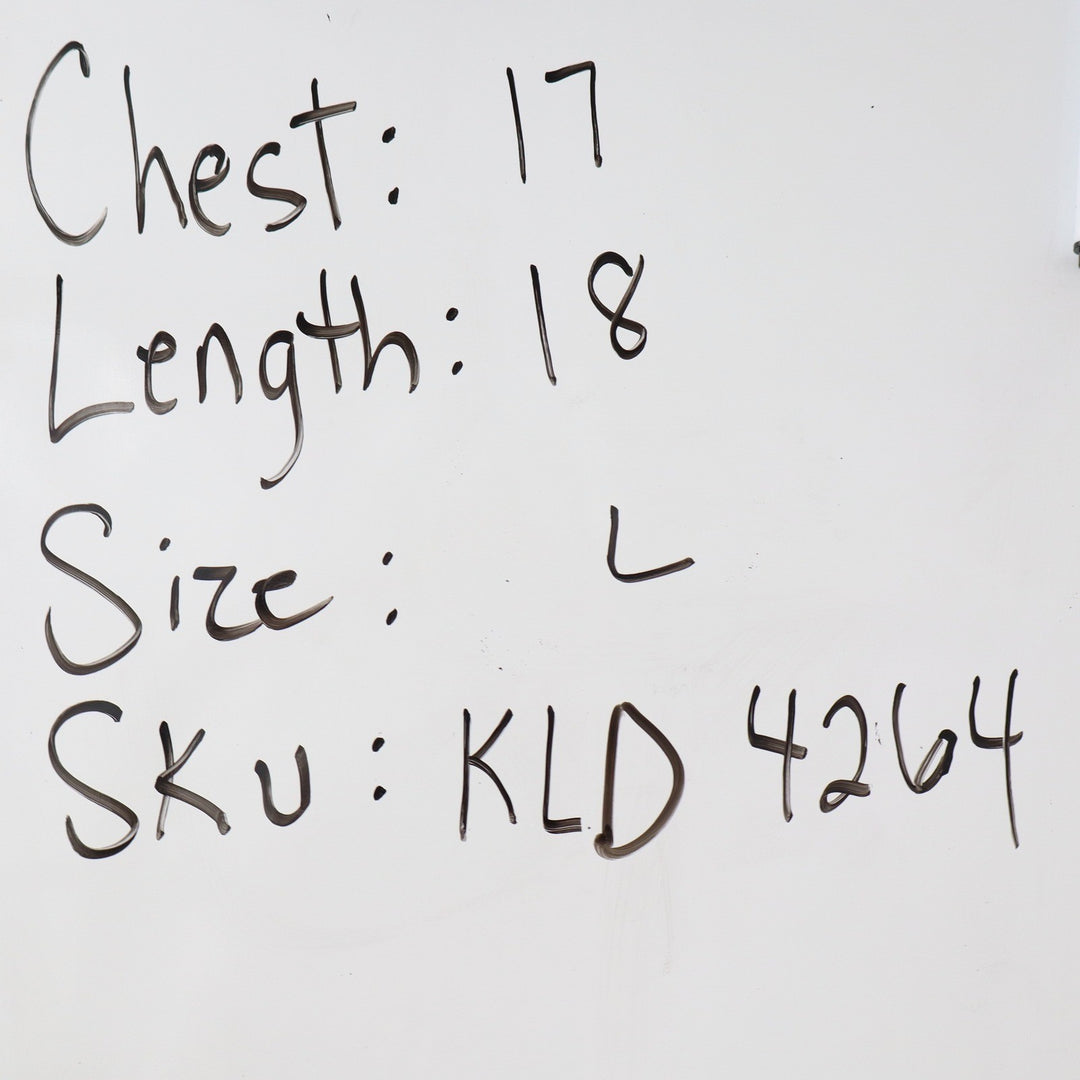 Chest: 17
Length: 18
Size: L
SKU: KLD 4264